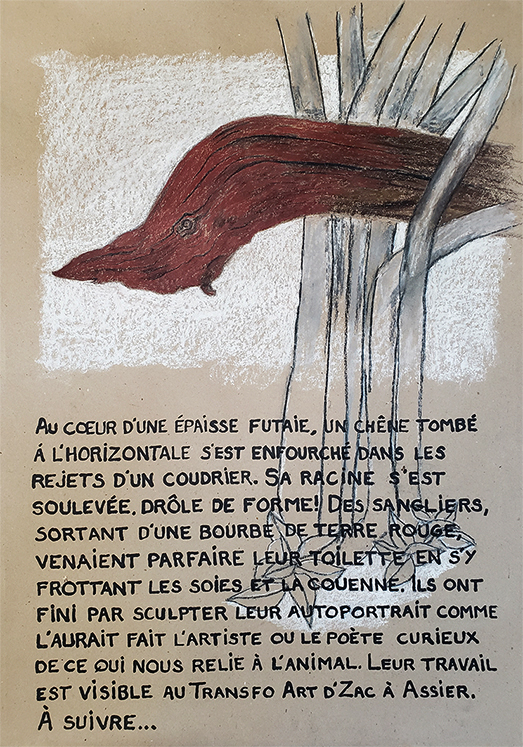 Au cœur d'une épaisse futaie, un chêne tombé
á l'horizontale s'est enfourché dans les
rejets d'un coudrier. Sa racine s'est
soulevée. Drôle de forme! Des sangliers,
sortant d'une bourbe de terre rouge,
venaient parfaire leur toilette en s'y
frottant les soies et la couenne. Ils ont
fini par sculpter leur autoportrait comme
l'aurait fait l'artiste ou le poète curieux
de ce qui nous relie à l'animal. Leur travail
est visible au Transfo Art d'Zac à Assier.
À suivre...